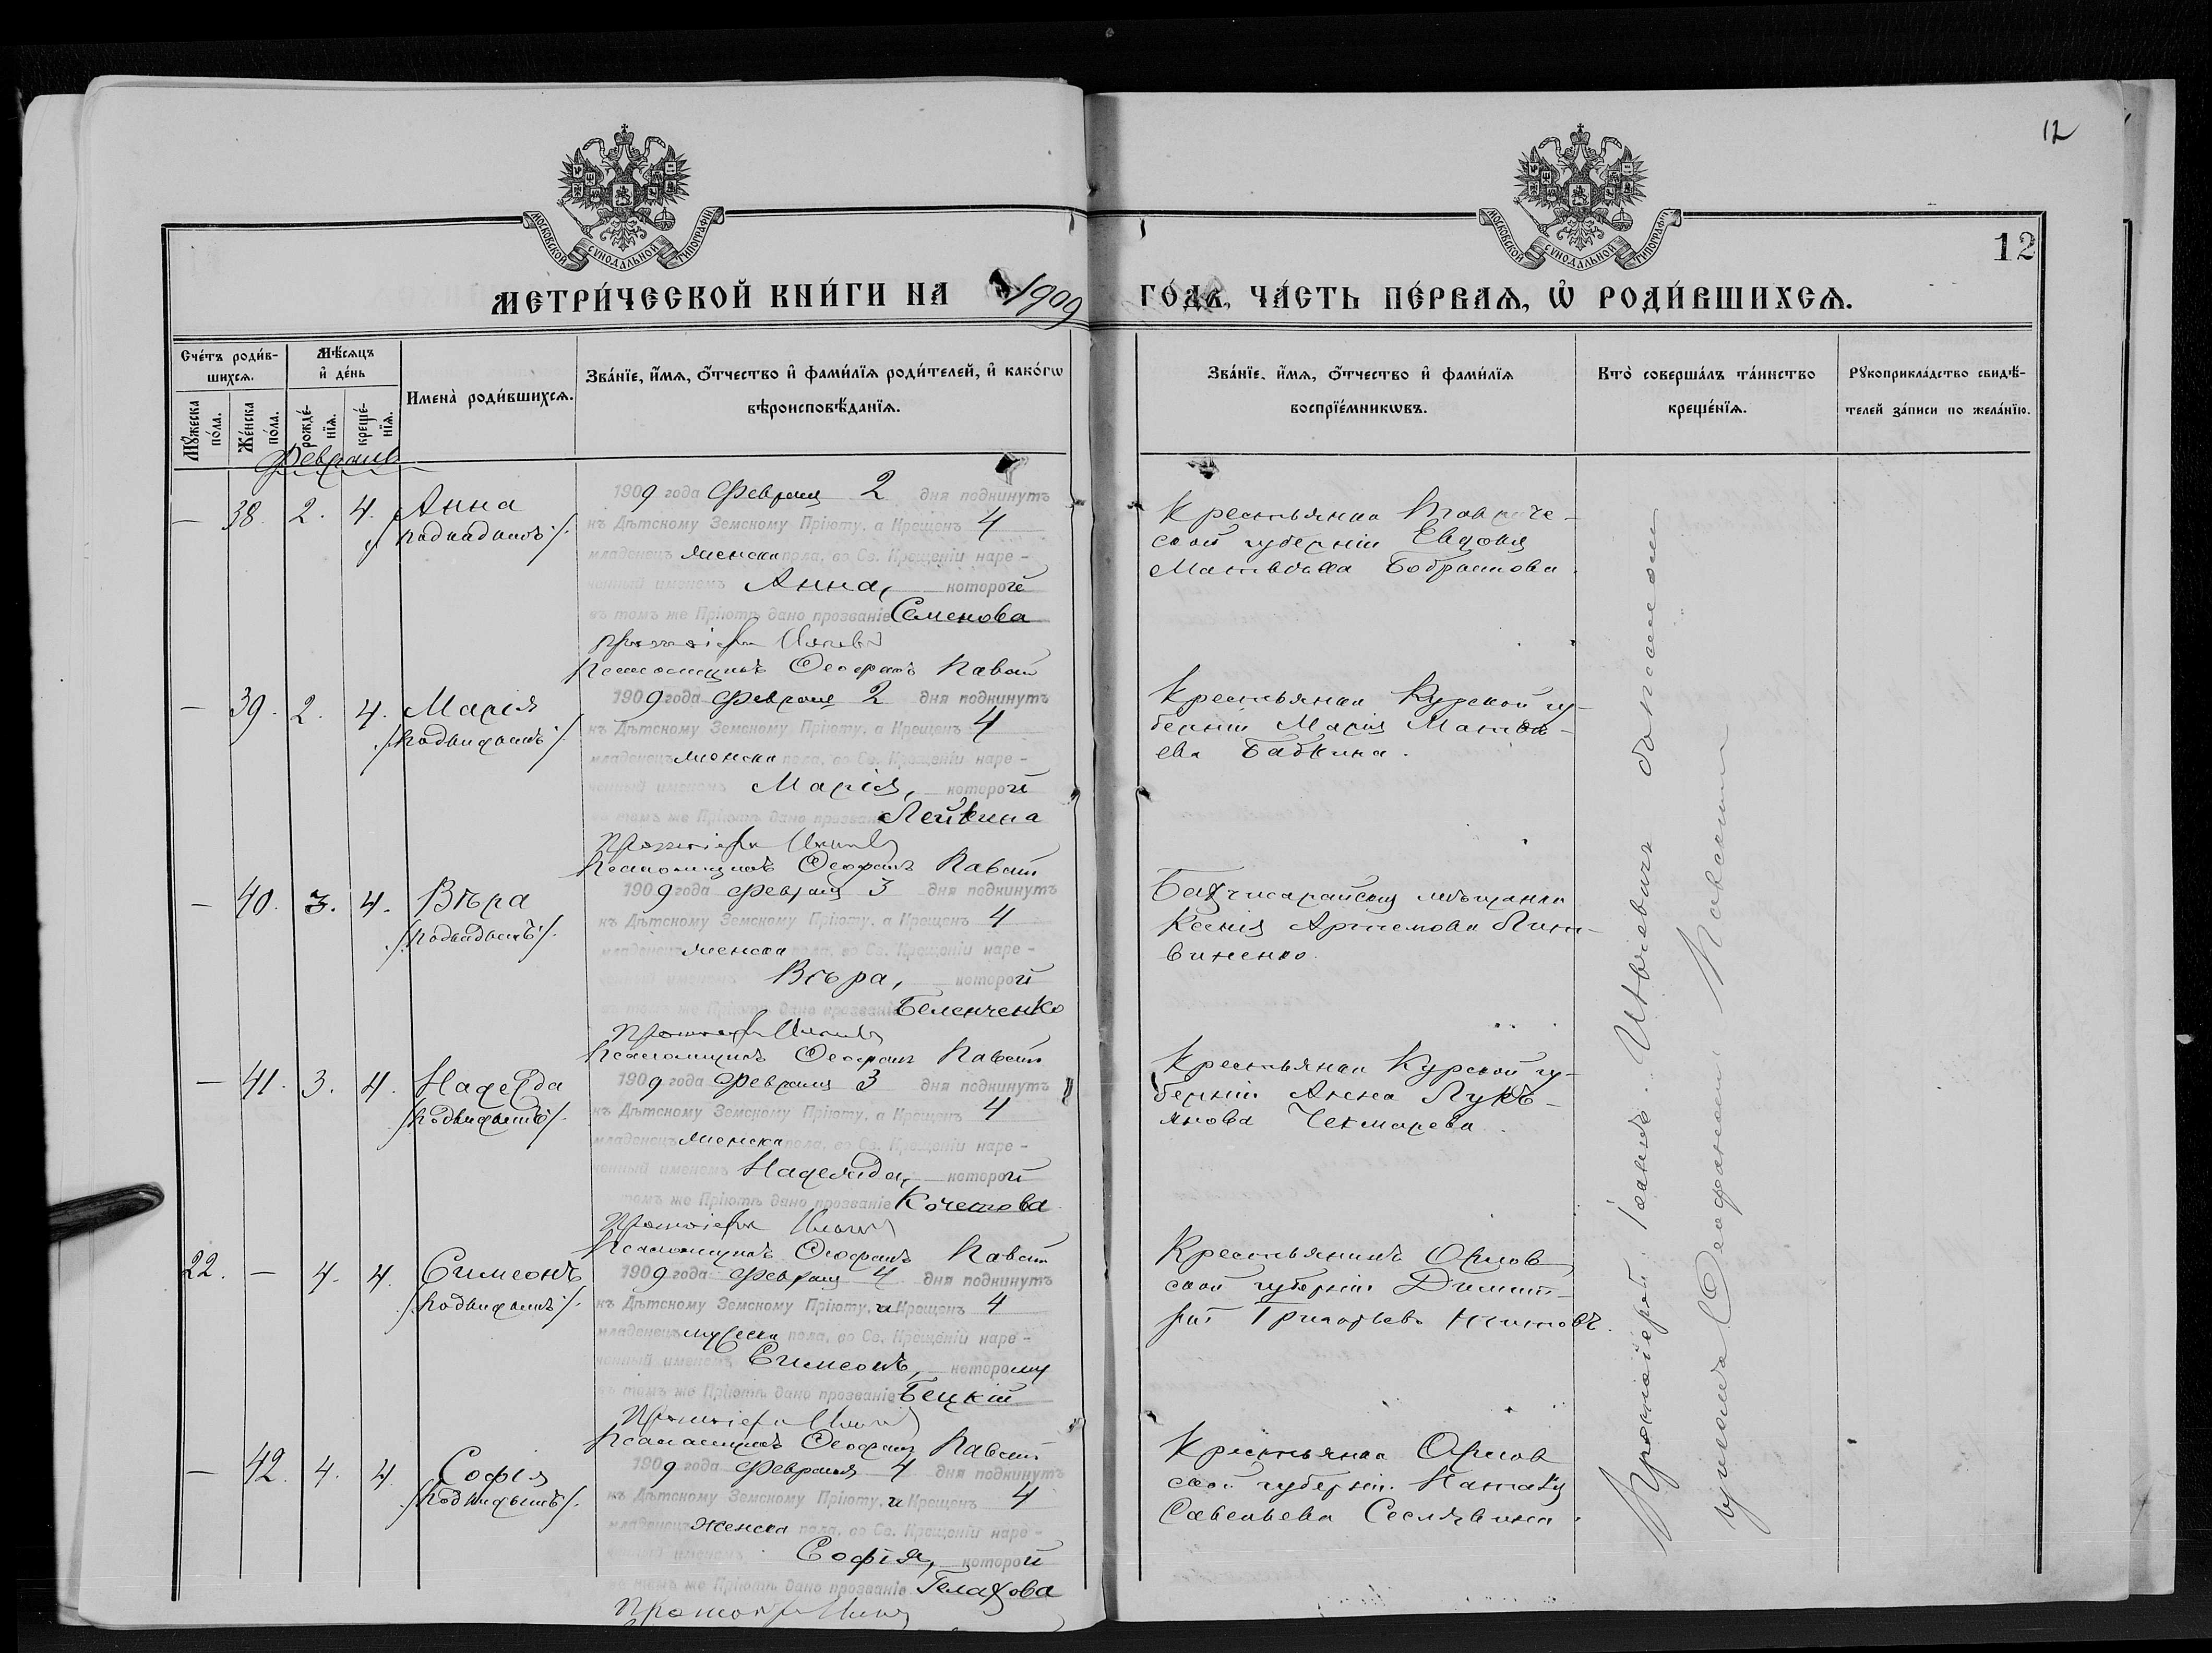 12
МОСКОВСКОЙ СУНОДАЛЬНОЙ ТИПОГРАФІИ
МОСКОВСКОЙ СУНОДАЛЬНОЙ ТИПОГРАФІИ
12
МЕТРИ́ЧЕСКОЙ КНИ́ГИ НА 1909 ГО́ДЪ, ЧА́СТЬ ПЕ́РВАѦ, Ѡ҆ РОДИ́ВШИХСѦ.
Сче́тъ роди́в-
шихсѧ.
Мꙋ́жеска по́ла.
Же́нска по́ла.
Мѣ́сѧцъ
и҆ де́нь
рожде́-
нїѧ.
креще́-
нїѧ.
Имена̀ роди́вшихсѧ.
Зва́нїе, и҆́мѧ, ѻ҆́тчество и҆ фами́лїѧ роди́телей, и҆ како́гѡ
вѣроисповѣ́данїѧ.
Зва́нїе, и҆́мѧ, ѻ҆́тчество и҆ фами́лїѧ
воспрїе́мникѡвъ.
Кто̀ соверша́лъ та́инство
креще́нїѧ.
Рꙋкоприкла́дство свидѣ́-
телей за́писи по жела́нїю.
Февраль
— 38. 2. 4. Анна
1909 года Февраля 2 дня подкинутъ
къ Дѣтскому Земскому Пріюту, а Крещенъ 4
младенецъ женска пола, во Св. Крещеніи наре-
ченный именемъ Анна, которой
въ томъ же Пріютѣ дано прозваніе Семенова
Протоіерей
Псаломщикъ Ѳеофанъ
Крестьянка Тавриче-
ской губерніи Евдокія
Матвѣева
— 39. 2. 4. Марія
1909 года Февраля 2 дня подкинутъ
къ Дѣтскому Земскому Пріюту, а Крещенъ 4
младенецъ женска пола, во Св. Крещеніи наре-
ченный именемъ Марія, которой
въ томъ же Пріютѣ дано прозваніе Лейкина
Протоіерей
Псаломщикъ Ѳеофанъ
Крестьянка Курской гу-
берніи Марія Матвѣ-
ева Бабкина.
— 40. 3. 4. Вѣра
1909 года Февраля 3 дня подкинутъ
къ Дѣтскому Земскому Пріюту, а Крещенъ 4
младенецъ женска пола, во Св. Крещеніи наре-
ченный именемъ Вѣра, которой
въ томъ же Пріютѣ дано прозваніе Беленченко
Протоіерей
Псаломщикъ Ѳеофанъ
Бахчисарайская мѣщанка
Ксенія Артемова Лит-
виненко.
— 41. 3. 4. Надежда
1909 года Февраля 3 дня подкинутъ
къ Дѣтскому Земскому Пріюту, а Крещенъ 4
младенецъ женска пола, во Св. Крещеніи наре-
ченный именемъ Надежда, которой
въ томъ же Пріютѣ дано прозваніе
Протоіерей
Псаломщикъ Ѳеофанъ
Крестьянка Курской гу-
берніи Анна Лукь-
янова Чекмарева.
22. — 4. 4. Симеонъ
1909 года Февраля 4 дня подкинутъ
къ Дѣтскому Земскому Пріюту, и Крещенъ 4
младенецъ мужеска пола, во Св. Крещеніи наре-
ченный именемъ Симеонъ, которому
въ томъ же Пріютѣ дано прозваніе Бецкій
Протоіерей
Псаломщикъ Ѳеофанъ
Крестьянинъ Орлов
ской губерніи Димит-
рій Григорьевъ
— 42. 4. 4. Софія
1909 года Февраля 4 дня подкинутъ
къ Дѣтскому Земскому Пріюту, и Крещенъ 4
младенецъ женска пола, во Св. Крещеніи наре-
ченный именемъ Софія, которой
въ томъ же Пріютѣ дано прозваніе
Протоіерей
Крестьянка Орлов
ской губерніи. Наталія
Савельева
Протоіерей Іоаннъ
Ѳеофаномъ